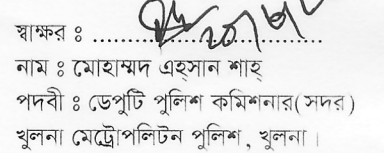 স্বাক্ষর ঃ ..............................
নাম ঃ মোহাম্মদ এহ্সান শাহ্
পদবী ঃ ডেপুটি পুলিশ কমিশনার(সদর)
খুলনা মেট্রোপলিটন পুলিশ, খুলনা।